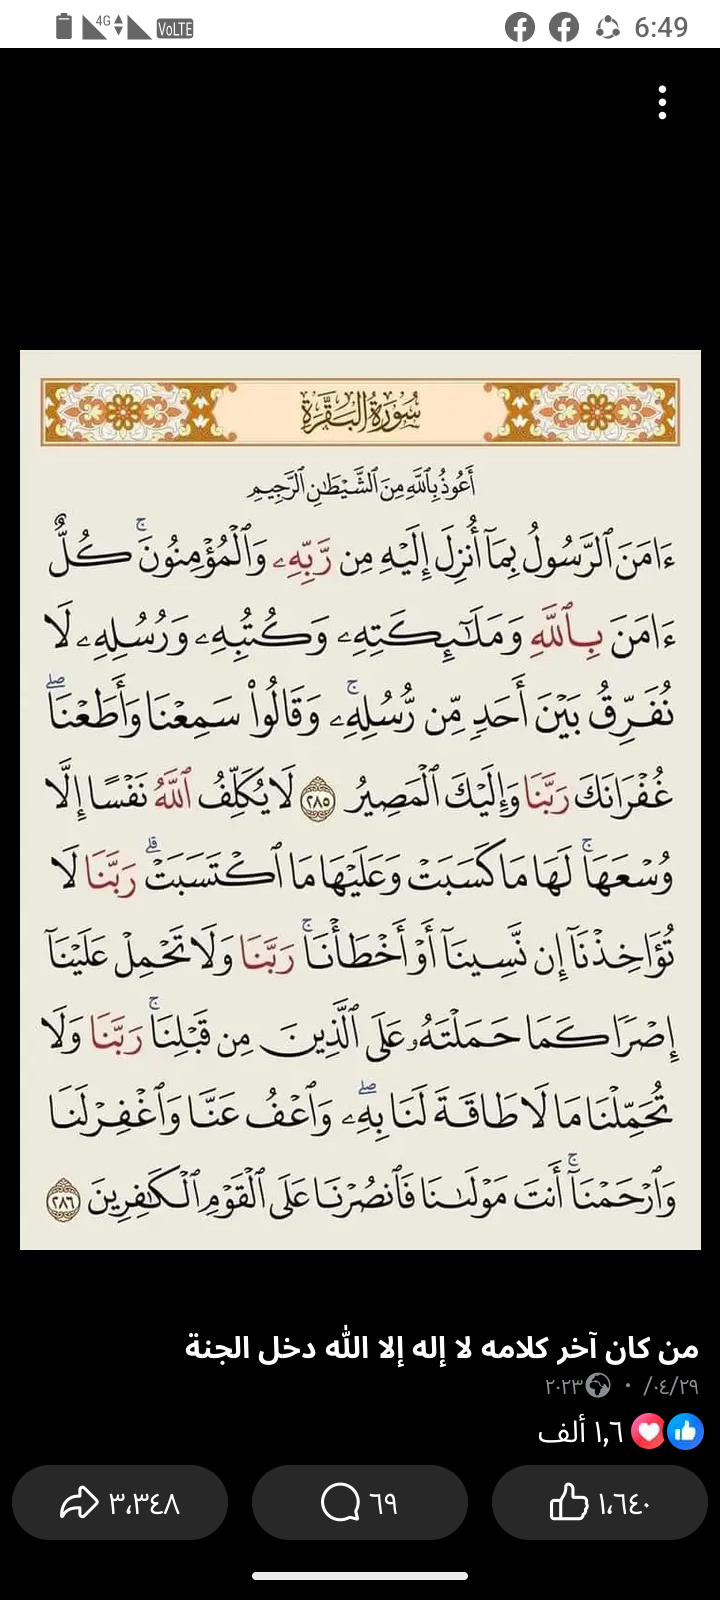 4G VoLTE 6:49
سُورَةُ البَقَرَةِ
أَعُوذُ بِٱللَّهِ مِنَ ٱلشَّيْطَٰنِ ٱلرَّجِيمِ
ءَامَنَ ٱلرَّسُولُ بِمَآ أُنزِلَ إِلَيْهِ مِن رَّبِّهِۦ وَٱلْمُؤْمِنُونَۚ كُلٌّ
ءَامَنَ بِٱللَّهِ وَمَلَٰٓئِكَتِهِۦ وَكُتُبِهِۦ وَرُسُلِهِۦ لَا
نُفَرِّقُ بَيْنَ أَحَدٍ مِّن رُّسُلِهِۦۚ وَقَالُوا۟ سَمِعْنَا وَأَطَعْنَاۖ
غُفْرَانَكَ رَبَّنَا وَإِلَيْكَ ٱلْمَصِيرُ ٢٨٥ لَا يُكَلِّفُ ٱللَّهُ نَفْسًا إِلَّا
وُسْعَهَاۚ لَهَا مَا كَسَبَتْ وَعَلَيْهَا مَا ٱكْتَسَبَتْۗ رَبَّنَا لَا
تُؤَاخِذْنَآ إِن نَّسِينَآ أَوْ أَخْطَأْنَاۚ رَبَّنَا وَلَا تَحْمِلْ عَلَيْنَآ
إِصْرًا كَمَا حَمَلْتَهُۥ عَلَى ٱلَّذِينَ مِن قَبْلِنَاۚ رَبَّنَا وَلَا
تُحَمِّلْنَا مَا لَا طَاقَةَ لَنَا بِهِۦۖ وَٱعْفُ عَنَّا وَٱغْفِرْ لَنَا
وَٱرْحَمْنَآۚ أَنتَ مَوْلَىٰنَا فَٱنصُرْنَا عَلَى ٱلْقَوْمِ ٱلْكَٰفِرِينَ ٢٨٦
من كان آخر كلامه لا إله إلا الله دخل الجنة
٠٤/٢٩/ ٢٠٢٣ ·
١,٦ ألف
١،٦٤٠ ٦٩ ٣،٣٤٨